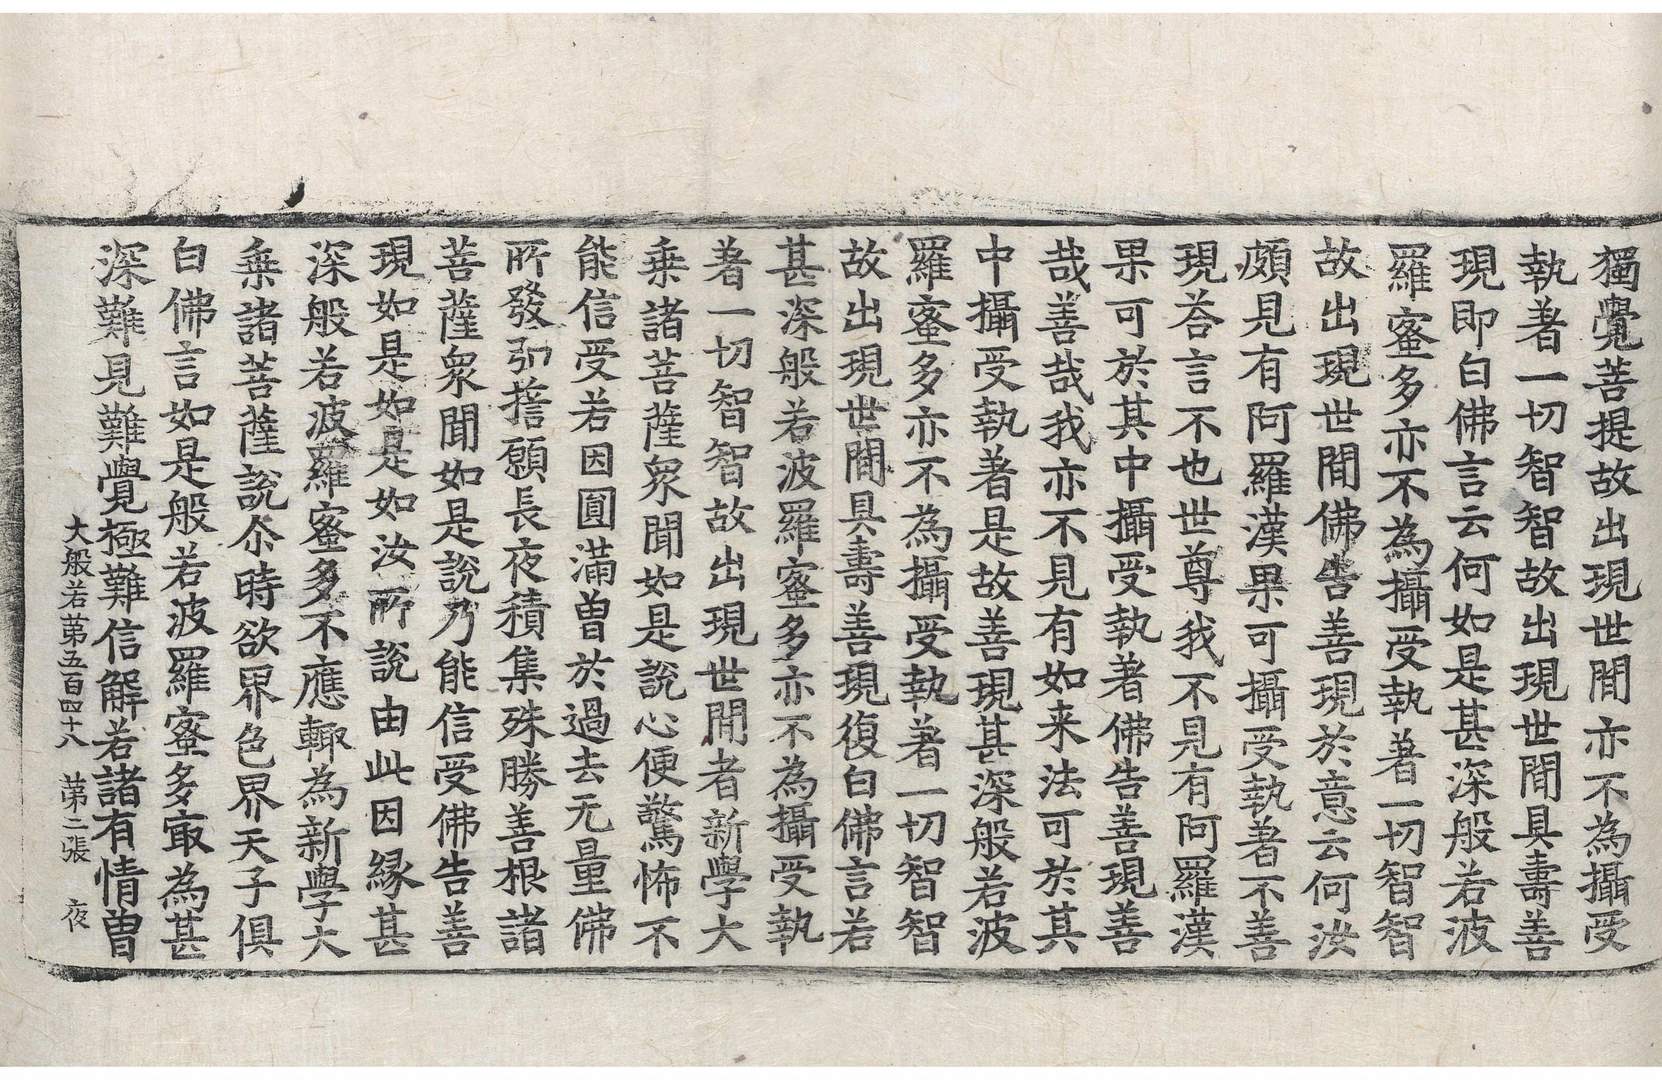 獨覺菩提故出現世間亦不為攝受
執著一切智智故出現世間具壽善
現即白佛言云何如是甚深般若波
羅蜜多亦不為攝受執著一切智智
故出現世間佛告善現於意云何汝
頗見有阿羅漢果可攝受執著不善
現荅言不也世尊我不見有阿羅漢
果可於其中攝受執著佛告善現善
哉善哉我亦不見有如来法可於其
中攝受執著是故善現甚深般若波
羅蜜多亦不為攝受執著一切智智
故出現世間具壽善現復白佛言若
甚深般若波羅蜜多亦不為攝受執
著一切智智故出現世間者新學大
乗諸菩薩衆聞如是說心便驚怖不
能信受若因圓滿曽於過去无量佛
所發弘擔願長夜積集殊勝善根諸
菩薩衆聞如是說乃能信受佛告善
現如是如是如汝所說由此因緣甚
深般若波羅蜜多不應輙為新學大
乗諸菩薩說尒時欲界色界天子俱
白佛言如是般若波羅蜜多㝡為甚
深難見難覺極難信解若諸有情曽
大般若苐五百四十八 苐二張 夜